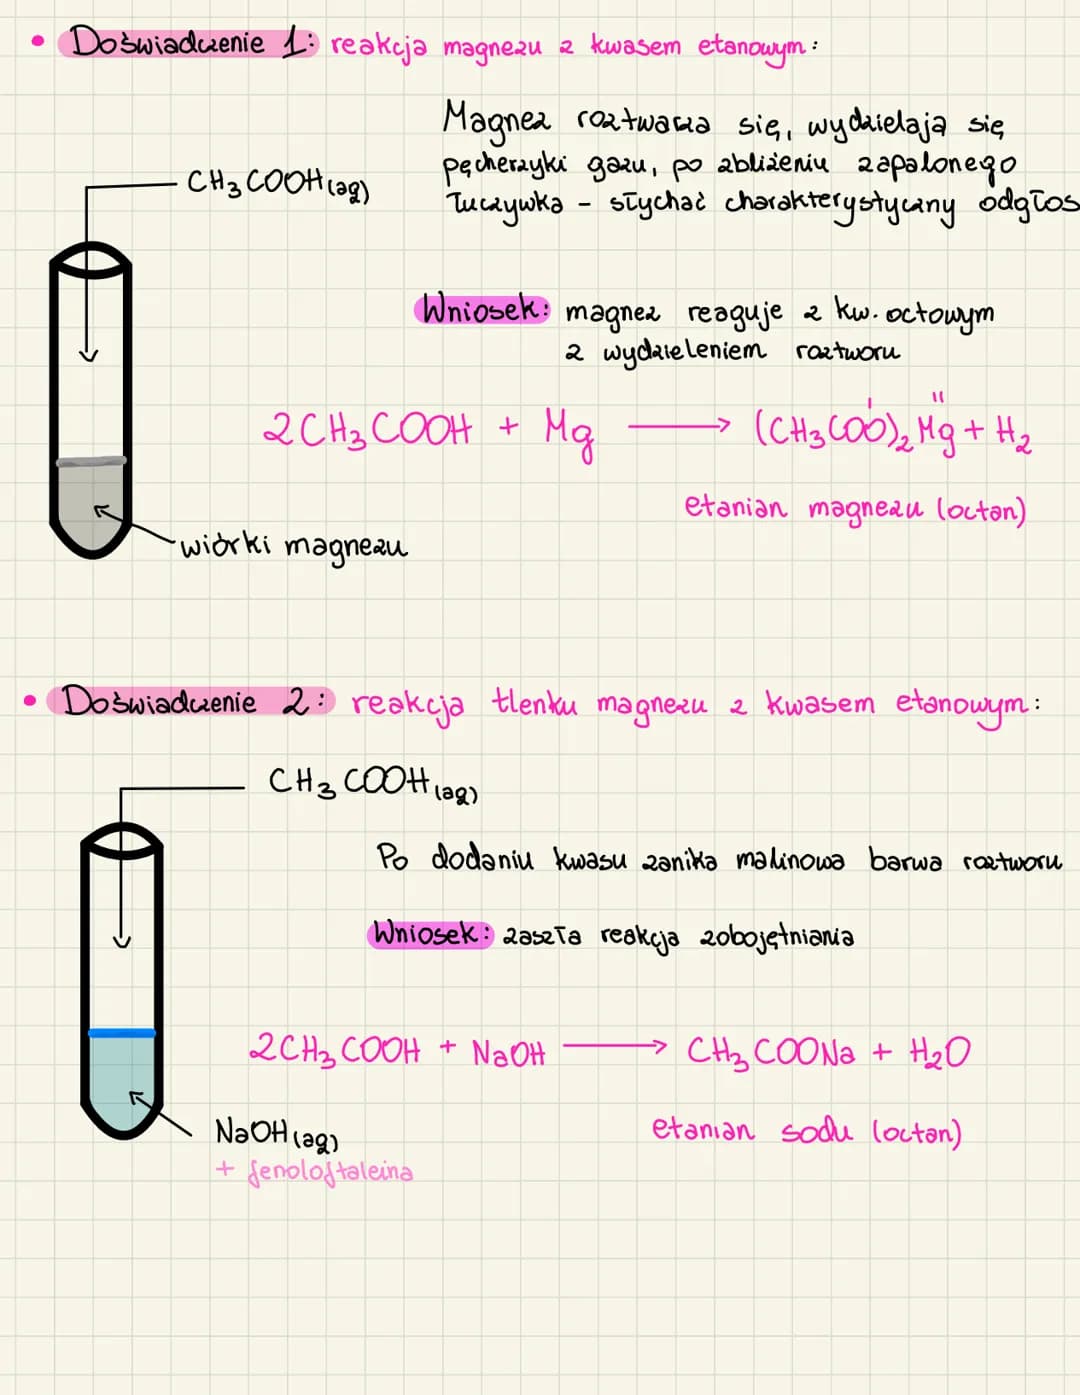 • Doświadczenie 1: reakcja magnezu z kwasem etanowym:
Magnez roztwarza się, wydzielają się
CH3COOH(aq)
pęcherzyki gazu, po zbliżeniu zapalonego
łuczywka - słychać charakterystyczny odgłos
Wniosek: magnez reaguje z kw. octowym
z wydzieleniem roztworu
2CH₃COOH + Mg ⟶ (CH₃COO)₂Mg + H₂
I II
etanian magnezu (octan)
wiórki magnezu
• Doświadczenie 2: reakcja tlenku magnezu z kwasem etanowym:
CH₃COOH(aq)
Po dodaniu kwasu zanika malinowa barwa roztworu
Wniosek: zaszła reakcja zobojętniania
2CH₃COOH + NaOH ⟶ CH₃COONa + H₂O
NaOH(aq)
etanian sodu (octan)
+ fenoloftaleina